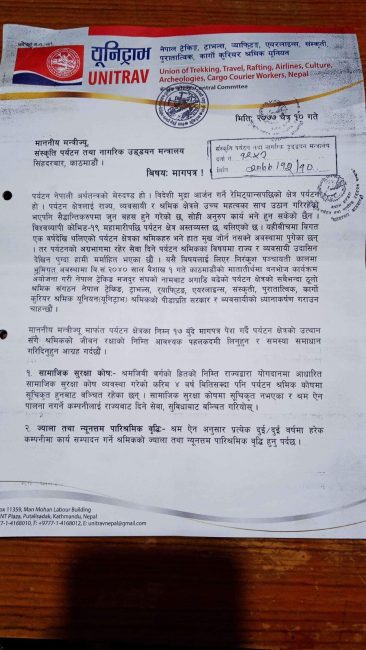 यूनिट्राभ
UNITRAV
नेपाल ट्रेकिङ, ट्राभल्स, र्‍याफ्टिङ, एयरलाइन्स, संस्कृती,
पुरातात्विक, कार्गो कुरियर श्रमिक युनियन
Union of Trekking, Travel, Rafting, Airlines, Culture,
Archeologies, Cargo Courier Workers, Nepal
Central Committee
मिति: २०७७ चैत्र १० गते
माननीय मन्त्रीज्यू,
संस्कृति पर्यटन तथा नागरिक उड्डयन मन्त्रालय
सिंहदरबार, काठमाडौं ।
संस्कृति पर्यटन तथा नागरिक उड्डयन मन्त्रालय
दर्ता नं.
मिति
विषयः मागपत्र ।
पर्यटन नेपाली अर्थतन्त्रको मेरुदण्ड हो । विदेशी मुद्रा आर्जन गर्ने रेमिट्यान्सपछिको क्षेत्र पर्यटन
हो । पर्यटन क्षेत्रलाई राज्य, व्यवसायी र श्रमिक क्षेत्रले उच्च महत्वका साथ उठान गरिरहेको
भएपनि सैद्धान्तिकरुपमा जुन बहस हुने गरेको छ, सोही अनुरुप कार्य भने हुन सकेको छैन ।
विश्वव्यापी कोभिड-१९, महामारीपछि पर्यटन क्षेत्र अस्तव्यस्त छ, थलिएको छ । यहीबीचमा विगत
एक वर्षदेखि थलिएको पर्यटन क्षेत्रका श्रमिकहरु भने हात मुख जोर्न नसक्ने अवस्थामा पुगेका छन्
। तर पर्यटनको अग्रभागमा रहेर सेवा दिने पर्यटन श्रमिकका बिषयमा राज्य र व्यवसायी उदासिन
देखिन पुग्दा हामी मर्माहित भएका छौं । यसै बिषयलाई लिएर निरंकुश पञ्चायती कालमा
भुमिगत अवस्थामा बि.सं २०४० साल बैशाख १ गते काठमाडौंको मातातीर्थमा वनभोज कार्यक्रम
आयोजना गरी नेपाल ट्रेकिङ मजदुर संघको नामबाट अगाडि बढेको पर्यटन क्षेत्रको सबैभन्दा ठूलो
श्रमिक संगठन नेपाल ट्रेकिङ, ट्राभल्स, र्‍याफ्टिङ, एयरलाइन्स, संस्कृती, पुरातात्विक, कार्गो
कुरियर श्रमिक युनियन(युनिट्राभ) श्रमिकको पीडाप्रति सरकार र व्यवसायीको ध्यानाकर्षण गराउन
चाहन्छौं ।
माननीय मन्त्रीज्यू मार्फत पर्यटन क्षेत्रका निम्न १७ बुँदे मागपत्र पेश गर्दै पर्यटन क्षेत्रको उत्थान
संगै श्रमिकको जीवन रक्षाको निम्ति आवश्यक पहलकदमी लिनुहुन र समस्या समाधान
गरिदिनुहुन आग्रह गर्दछौं ।
१. सामाजिक सुरक्षा कोषः- श्रमजिवी बर्गको हितको निम्ति राज्यद्वारा योगदानमा आधारित
सामाजिक सुरक्षा कोष व्यवस्था गरेको करिब ४ वर्ष बितिसक्दा पनि पर्यटन श्रमिक कोषमा
सुचिकृत हुनबाट बन्चित रहेका छन् । सामाजिक सुरक्षा कोषमा सुचिकृत नभएका र श्रम ऐन
पालना नगर्ने कम्पनीलाई राज्यबाट दिने सेवा, सुबिधाबाट बन्चित गरियोस् ।
२. ज्याला तथा न्यूनतम पारिश्रमिक बृद्धिः- श्रम ऐन अनुसार प्रत्येक दुई/दुई वर्षमा हरेक
कम्पनीमा कार्य सम्पादन गर्ने श्रमिकको ज्याला तथा न्यूनतम पारिश्रमिक बृद्धि हुनु पर्दछ ।
ox 11359, Man Mohan Labour Building
NT Plaza, Putaliradak, Kathmandu, Nepal
77-1-4168010, F: +9777-1-4168012, E: unitravnepal@gmail.com